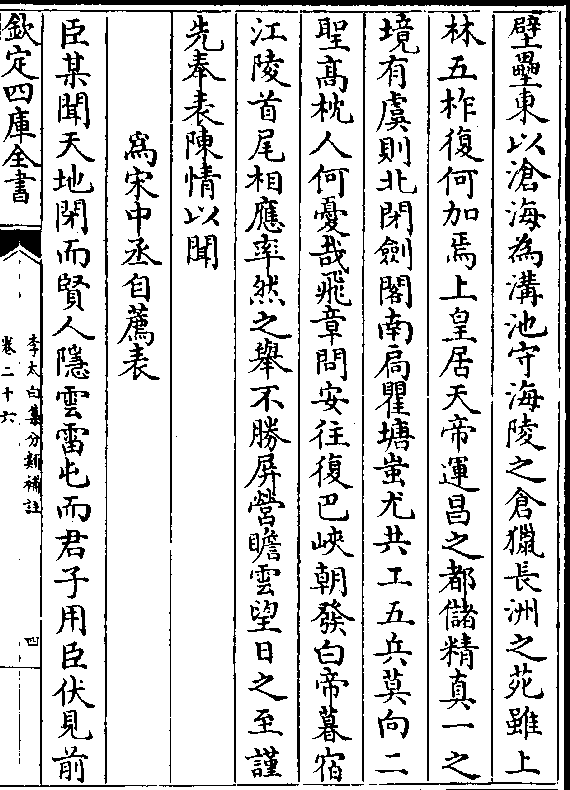 壁壘東以滄海為溝池守海陵之倉獵長洲之苑雖上
林五柞復何加焉上皇居天帝運昌之都儲精真一之
境有虞則北閉劍閣南扃瞿塘蚩尤共工五兵莫向二
聖高枕人何憂哉飛章問安往復巴峽朝發白帝暮宿
江陵首尾相應率然之舉不勝屏營瞻雲望日之至謹
先奉表陳情以聞
為宋中丞自薦表
臣某聞天地閉而賢人隱雲雷屯而君子用臣伏見前
欽定四庫全書
李太白集分類補註
卷二十六
四